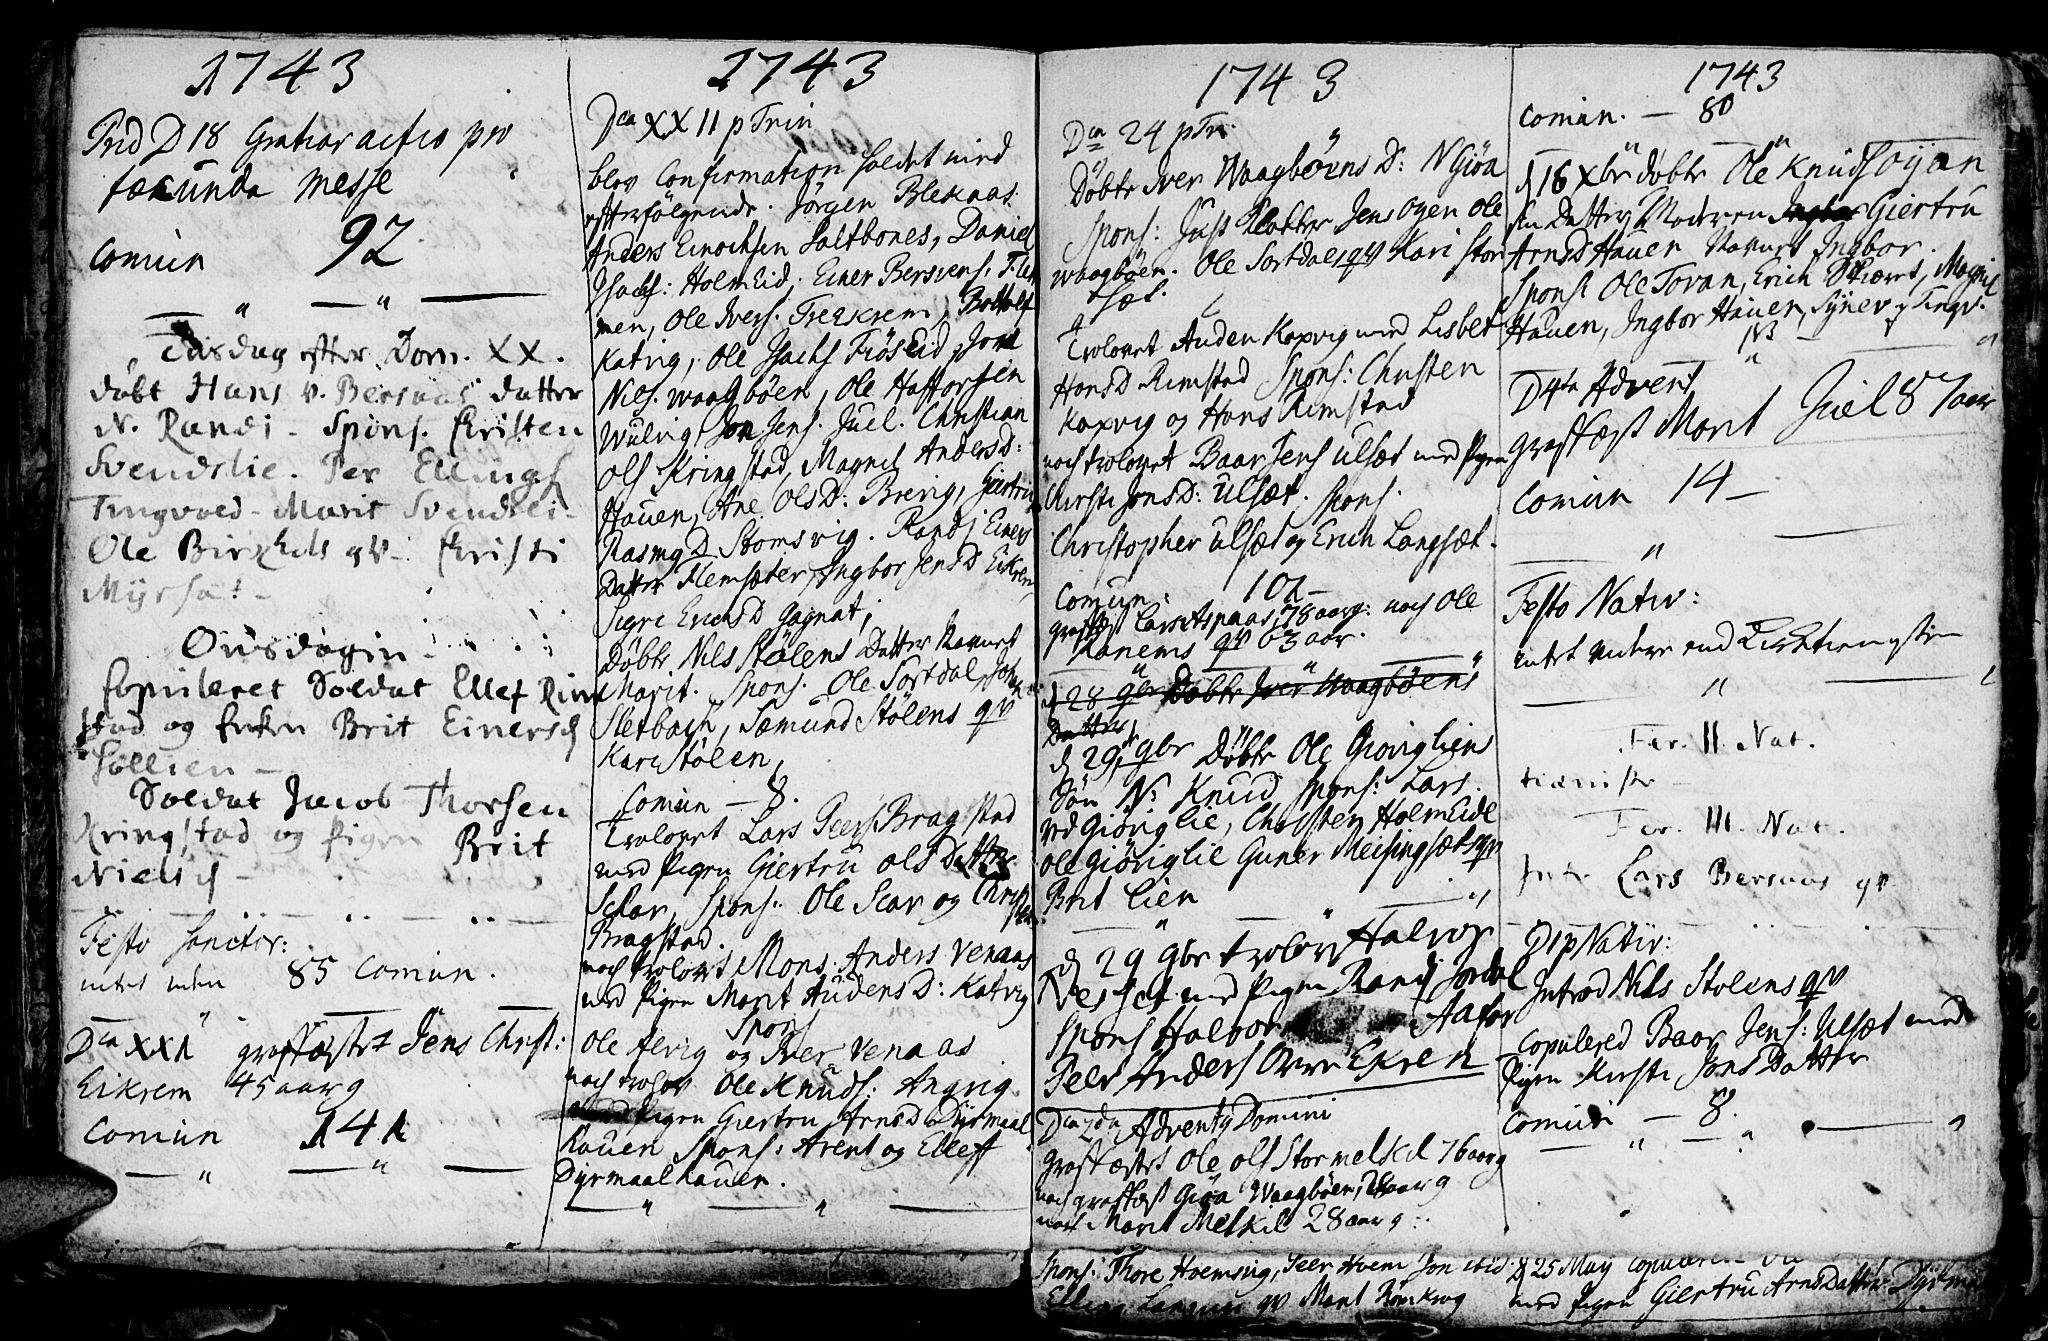 1743
Frid D 18 Gratiar actio pro
fæcunda Messe
Comun 92
Tisdag efter Dom. XX.
döbt Hans v. Bersaas datter
N. Randi - Spons. Kristen
Svendslie. Per Ellings
Tingvold - Marit Svendsli -
Ole Birkhils qv - Kirsti
Myrsæt -
Onsdagen
Copuleret Soldat Ellef Rim
stad og Enken Brit Einersd
Sollien -
Soldat Jacob Thorsen
Kringstad og Pigen Brit
Nielsd -
Festo Sanctor:
intet uden 85 Comun.
Dca XXI graffæstet Jens Christ:
Eikrem 45 aar g
Comun 141
1743
Dca XXII p Trin
blev Confirmation holdet med
efterfölgende. Jörgen Bleknas
Anders Einochsen Saltbones, Daniel
Isachs: Holmeid, Einer Bersvens:
men, Ole Ivers. Trerkrem,
Katvig, Ole Isachs Fiöseid, Jon
Nils. Waagböen, Ole Haftorsen
Wulvig, Jon Jens. Juel. Christian
Ols Kringstad, Magnil Andersd:
Hauen, Ane Olsd: Brevig, Giertru
Rasmusd Stomsvig. Randi Einers
Datter Flemsæter, Ingbor Jensd Eikrem
Sigri Erichsd Gagnat,
Döbte Nils Stölens Datter Navnet
Marit. Spons. Ole Sortdal,
Sletbach, Sæmund Stölens qv
Kari Stölen,
Comun - 8.
Trolovet Lars Peers Bragstad
med Pigen Giertru Ols Datter
Skar, Spons: Ole Scar og Christen
Bragstad.
noch trolovet Mons: Anders Venaas
med Pigen Marit Audensd: Katvig
Spons
Ole Alvig og Iver Venaas
noch trolov Ole Knuds: Angvig
med Pigen Giertru Arnsd Dyrmaal
Hauen Spons: Arent og Elleff
Dyrmaalhauen.
1743
Dca 24 p Tr.
Döbte Iver Waagböens D: N Giöa
Spons: Jens Oyen Ole
Waagböen. Ole Sortdales qv Kari Stor
sæt.
Trolovet Auden Koxvig med Lisbet
Hansd Rimstad Spons: Christen
Koxvig og Hans Rimstad
noch trolovet Baar Jens Ulsæt med Pigen
Kirsti Jonsd: Ulsæt. Spons.
Christopher Ulsæt og Erich Langsæt.
Comun: 102 -
graffæst Lars Aspaas, 78 aar g: noch Ole
Ranems qv 63 aar.
d 28 9br Döbte Iver Waagböens
Datter
d 29 9br Döbte Ole Giöviglien
Sön N: Knud Spons: Lars
Ved Giöviglie, Christen Holmeide
Ole Giöviglie Guner Meisingsæt qv
Brit Lien
d 29 9br trolov Halvor
med Pigen Randi Jordal
Spons Halvor Aafor
Peer Anders Övre Ekren
Dca 2da Adventg Domini
Graffæstet Ole Ols Stormelkil 76 aar g
noch graffæst Giöa Waagböen, aar g
noch Marit Melkil 28 aar g:
Spons: Thore Hoemsvig, Peer Hoem Jon ibid
Elling qv Marit Romkrog
1743
Comun. - 80
d 16 Xbr döbte Ole Knuds Oyan
sin Datter Moderen Giertru
Arnsd Hauen Navnet Ingbor.
Spons: Ole Torvan, Erich Skiæret, Magnil
Hauen, Ingbor Hauen, Synev Tingv.
183
D 4ta Advent
graffæst Marit Juel 87 aar
Comun 14 -
Festo Nativ:
intet videre end Kirketienesten
Fer. II. Nat.
tieniste -
Fer. III. Nat.
Intr. Lars Bersaas qv
D 1 p Nativ:
Introd Nils Stolens qv
Copulered Baar Jens: Ulsæt med
Pigen Kirsti Jons Datter
Comun - 8.
d 25 May copuleret
med Pigen Giertru Arns Datter Dyrma